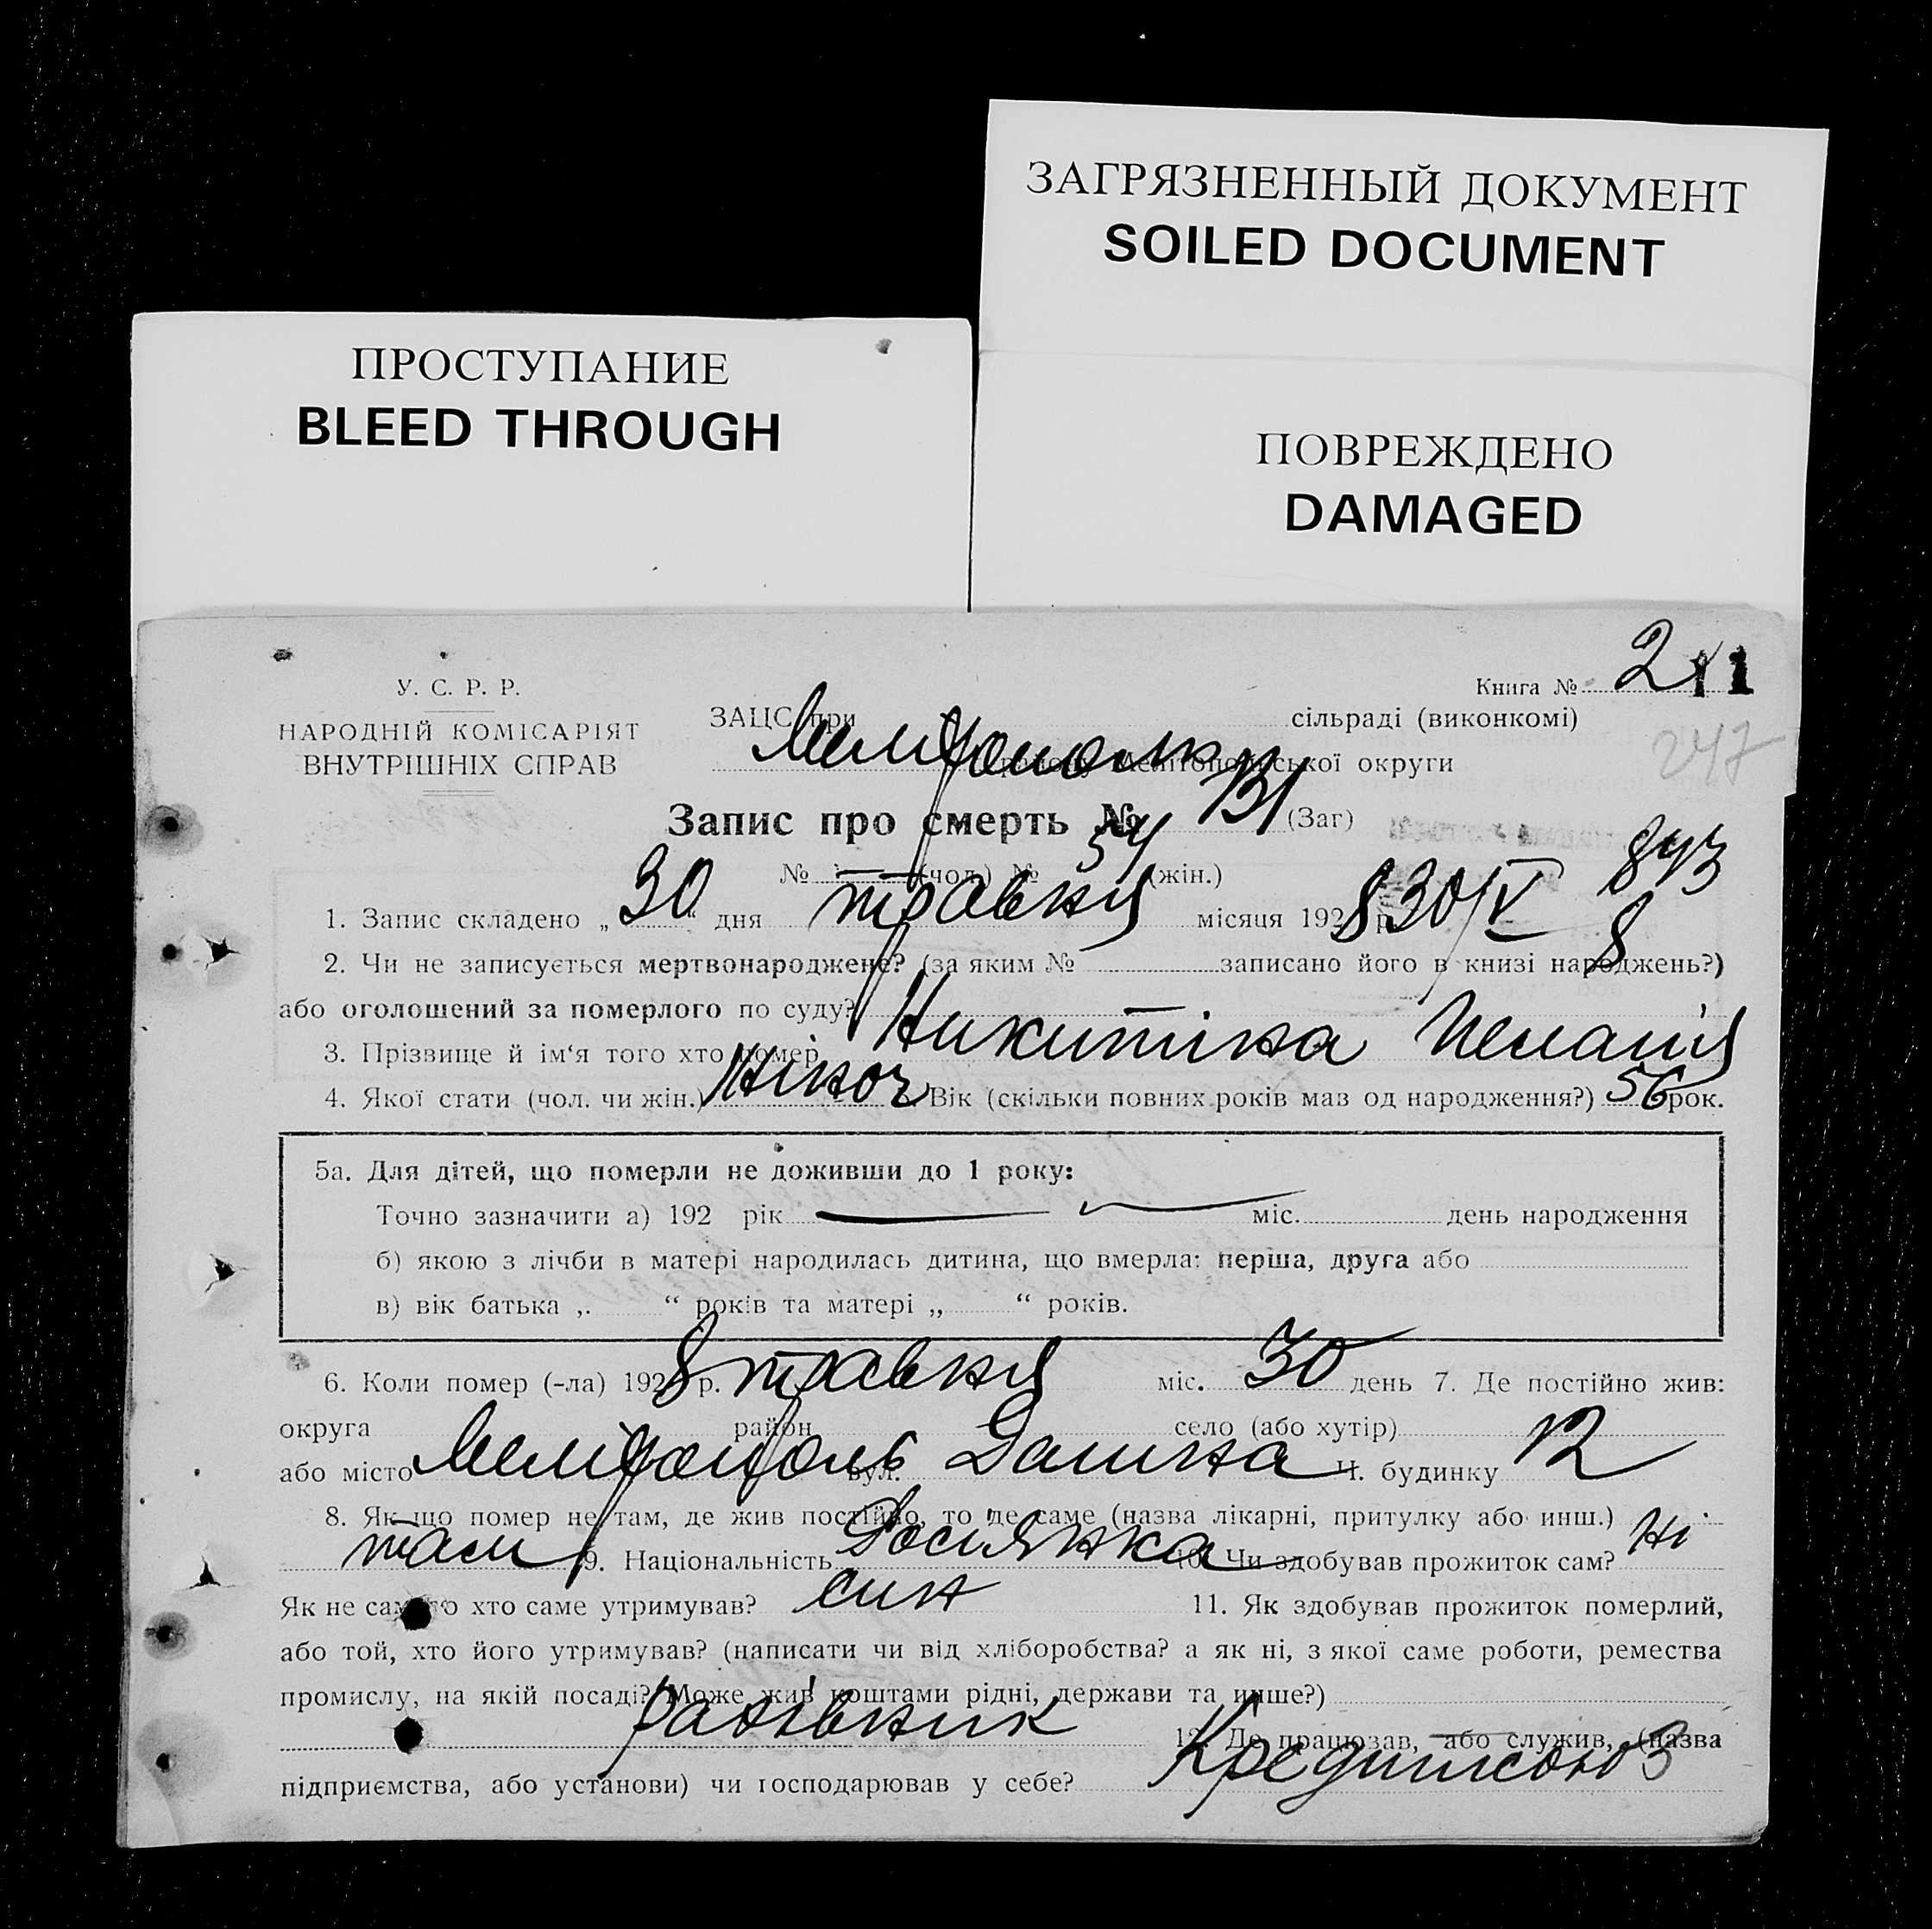 ЗАГРЯЗНЕННЫЙ ДОКУМЕНТ
SOILED DOCUMENT
ПРОСТУПАНИЕ
BLEED THROUGH
ПОВРЕЖДЕНО
DAMAGED
Книга № 2
У. С. Р. Р.
НАРОДНІЙ КОМІСАРІЯТ
ВНУТРІШНІХ СПРАВ
ЗАЦС при сільраді (виконкомі)
району Мелітопольської округи
247
Запис про смерть № 131 (Заг)
№ — (чол.) № 54 (жін.)
843
1. Запис складено „ 30 “ дня травня місяця 1928 р. 30/V
8
2. Чи не записується мертвонароджене? (за яким № записано його в книзі народжень?)
або оголошений за померлого по суду?
3. Прізвище й ім‘я того хто помер Никитіна Меланія
4. Якої стати (чол. чи жін.) Жіноч Вік (скільки повних років мав од народження?) 56 рок.
5а. Для дітей, що померли не доживши до 1 року:
Точно зазначити а) 192 рік — міс. день народження
б) якою з лічби в матері народилась дитина, що вмерла: перша, друга або
в) вік батька „ “ років та матері „ “ років.
6. Коли помер (-ла) 1928 р. травня міс. 30 день 7. Де постійно жив:
округа район село (або хутір)
або місто Мелітополь вул. Ч. будинку 12
8. Як що помер не там, де жив постійно, то де саме (назва лікарні, притулку або инш.)
там 9. Національність Росіянка 10. Чи здобував прожиток сам? Ні
Як не сам то хто саме утримував? син 11. Як здобував прожиток померлий,
або той, хто його утримував? (написати чи від хліборобства? а як ні, з якої саме роботи, ремества
промислу, на якій посаді? Може жив коштами рідні, держави та инше?)
рахівник 12. Де працював, або служив, (назва
підприємства, або установи) чи господарював у себе? Кредитсоюз